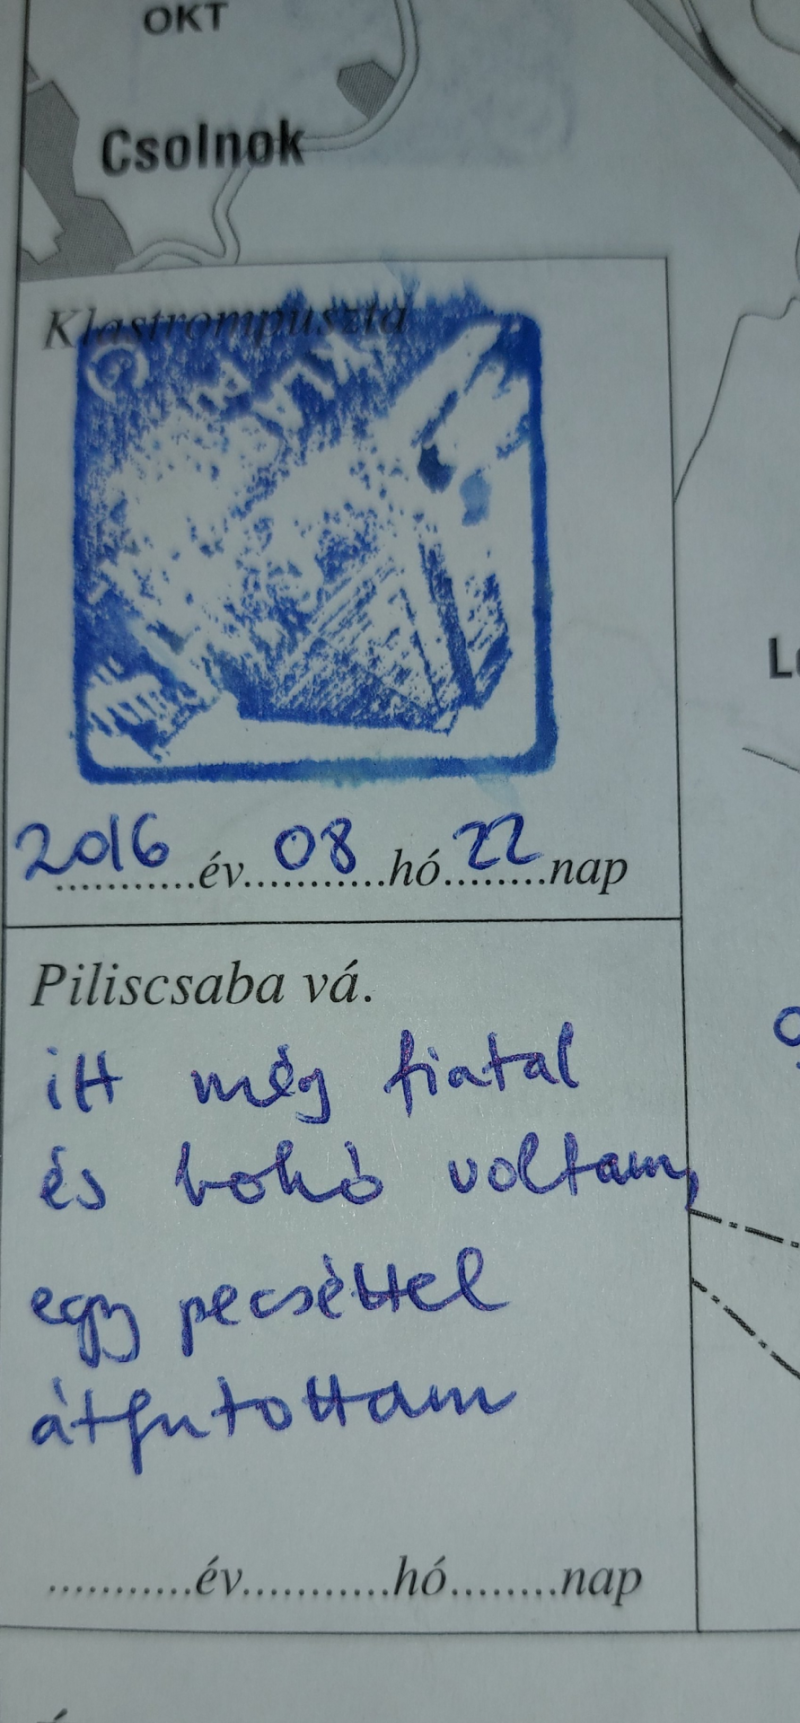 OKT
Csolnok
Klastrompuszta
2016 év 08 hó 22 nap
Piliscsaba vá.
itt még fiatal
és bohó voltam,
egy pecséttel
átfutottam
...........év...........hó........nap